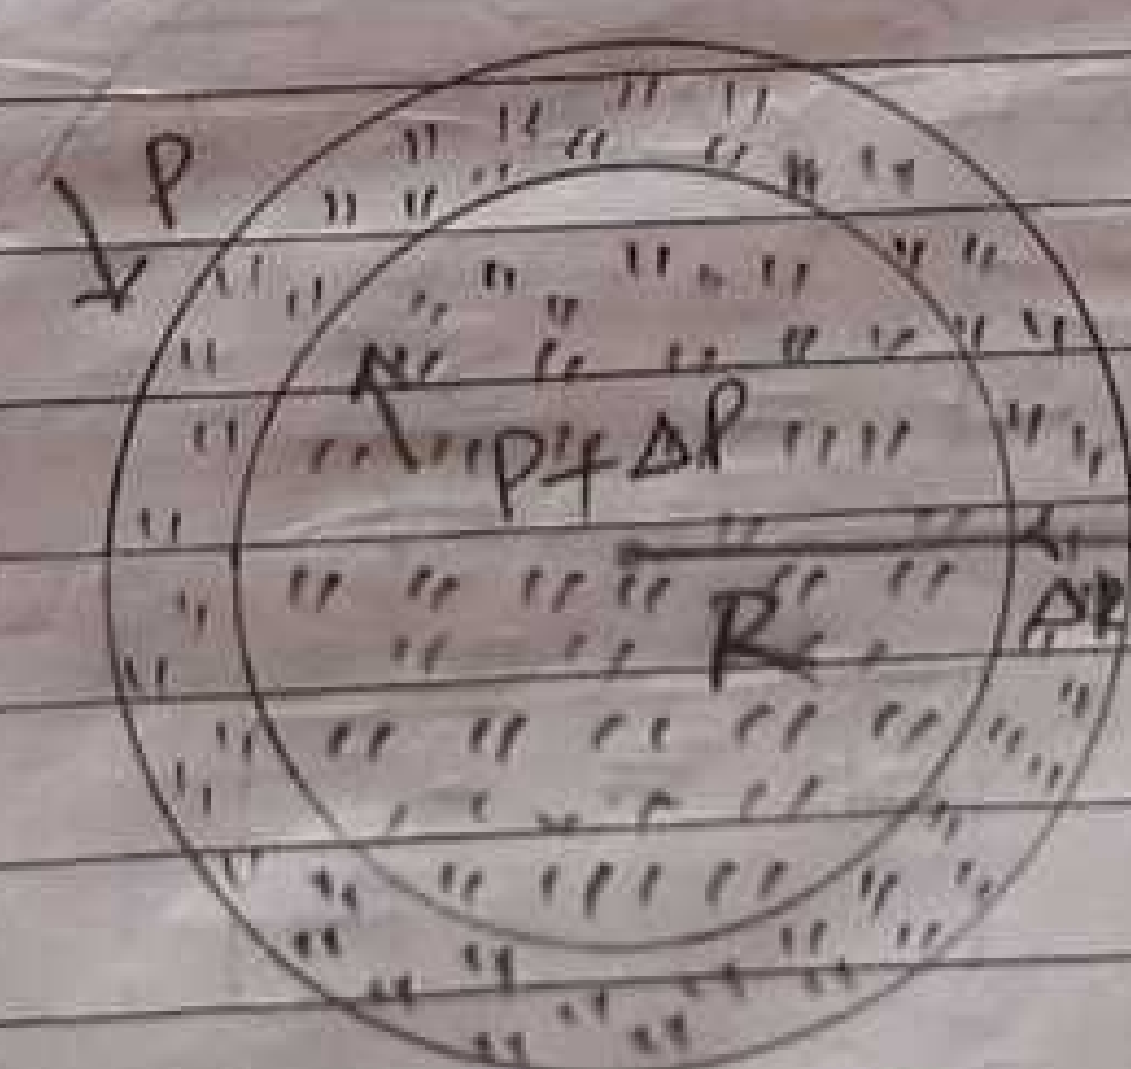 P
P+ΔP
R
ΔR